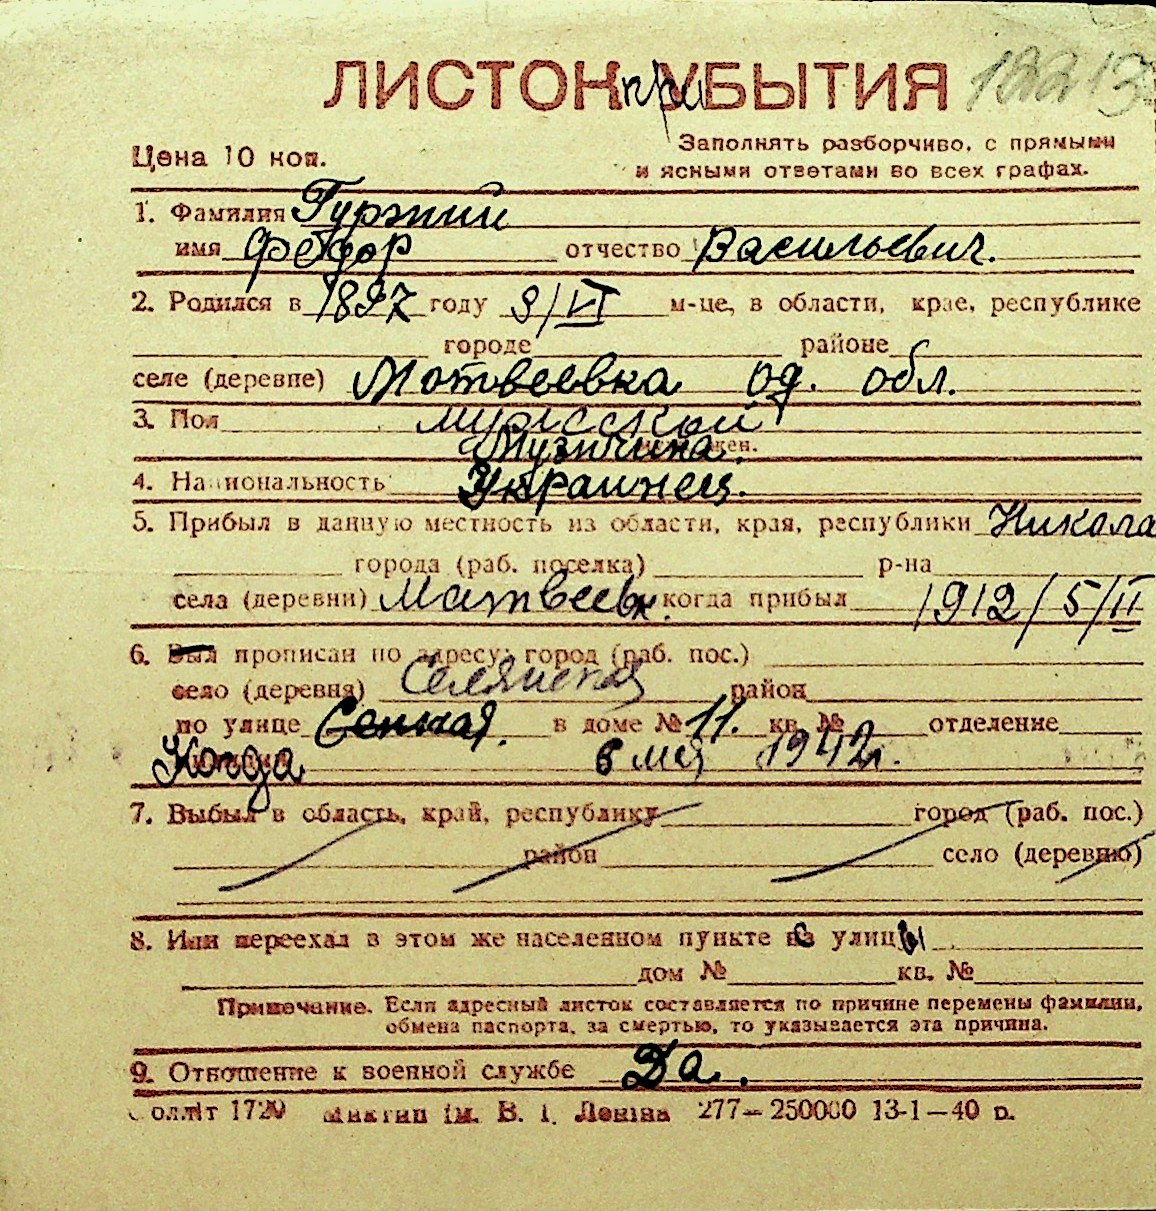 ЛИСТОК при УБЫТИЯ 12213
Цена 10 коп.
Заполнять разборчиво, с прямыми
и ясными ответами во всех графах.
1. Фамилия Гуржий
имя Фёдор отчество Васильевич.
2. Родился в 1897 году 9/VI м-це, в области, крае, республике
городе районе
селе (деревне) Мотвеевка од. обл.
3. Пол мужской
Мужчина. жен.
4. Национальность Украинец.
5. Прибыл в данную местность из области, края, республики Никола
города (раб. поселка) р-на
села (деревни) Матвеевк. когда прибыл 1912/5/II
6. Был прописан по адресу: город (раб. пос.)
село (деревня) Селянская район
по улице Сенная. в доме № 11. кв. № отделение
Когда 6 мая 1942г.
7. Выбыл в область, край, республику город (раб. пос.)
район село (деревню)
8. Или переехал в этом же населенном пункте с улицы
дом № кв. №
Примечание. Если адресный листок составляется по причине перемены фамилии,
обмена паспорта, за смертью, то указывается эта причина.
9. Отношение к военной службе Да.
оллiт 1720 Миктип iм. В. I. Ленiна 277—250000 13-1—40 р.